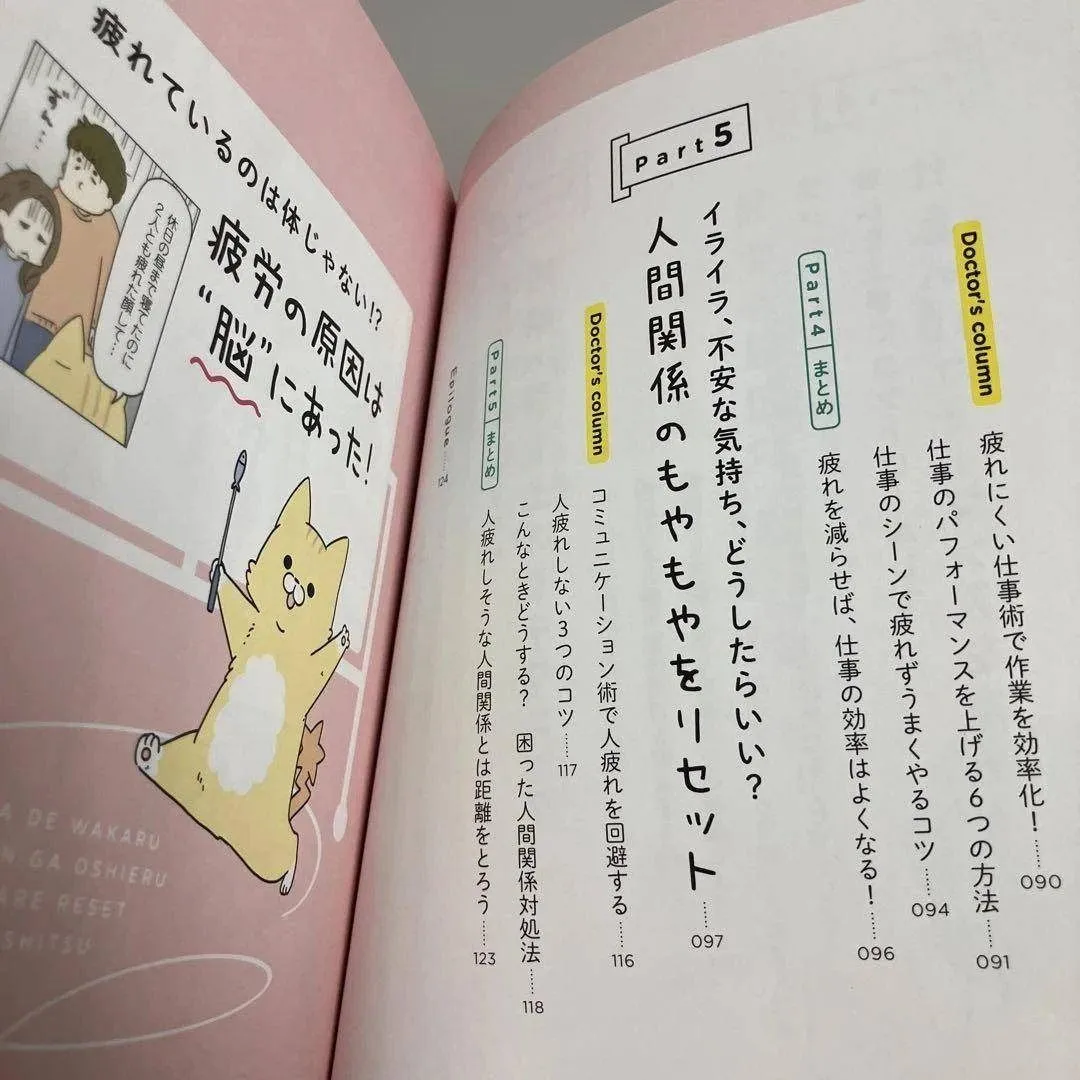 Doctor's column
疲れにくい仕事術で作業を効率化!……090
仕事のパフォーマンスを上げる6つの方法……091
仕事のシーンで疲れずうまくやるコツ……094
Part4 まとめ
疲れを減らせば、仕事の効率はよくなる!……096
Part5
イライラ、不安な気持ち、どうしたらいい?
人間関係のもやもやをリセット……097
Doctor's column
コミュニケーション術で人疲れを回避する……116
人疲れしない3つのコツ……117
こんなときどうする? 困った人間関係対処法……118
Part5 まとめ
人疲れしそうな人間関係とは距離をとろう……123
Epilogue……124
疲れているのは体じゃない!?
疲労の原因は
“脳”にあった!
ずん…
休日の昼まで寝てたのに
2人とも疲れた顔して…
A DE WAKARU
N GA OSHIERU
ARE RESET
SHITSU